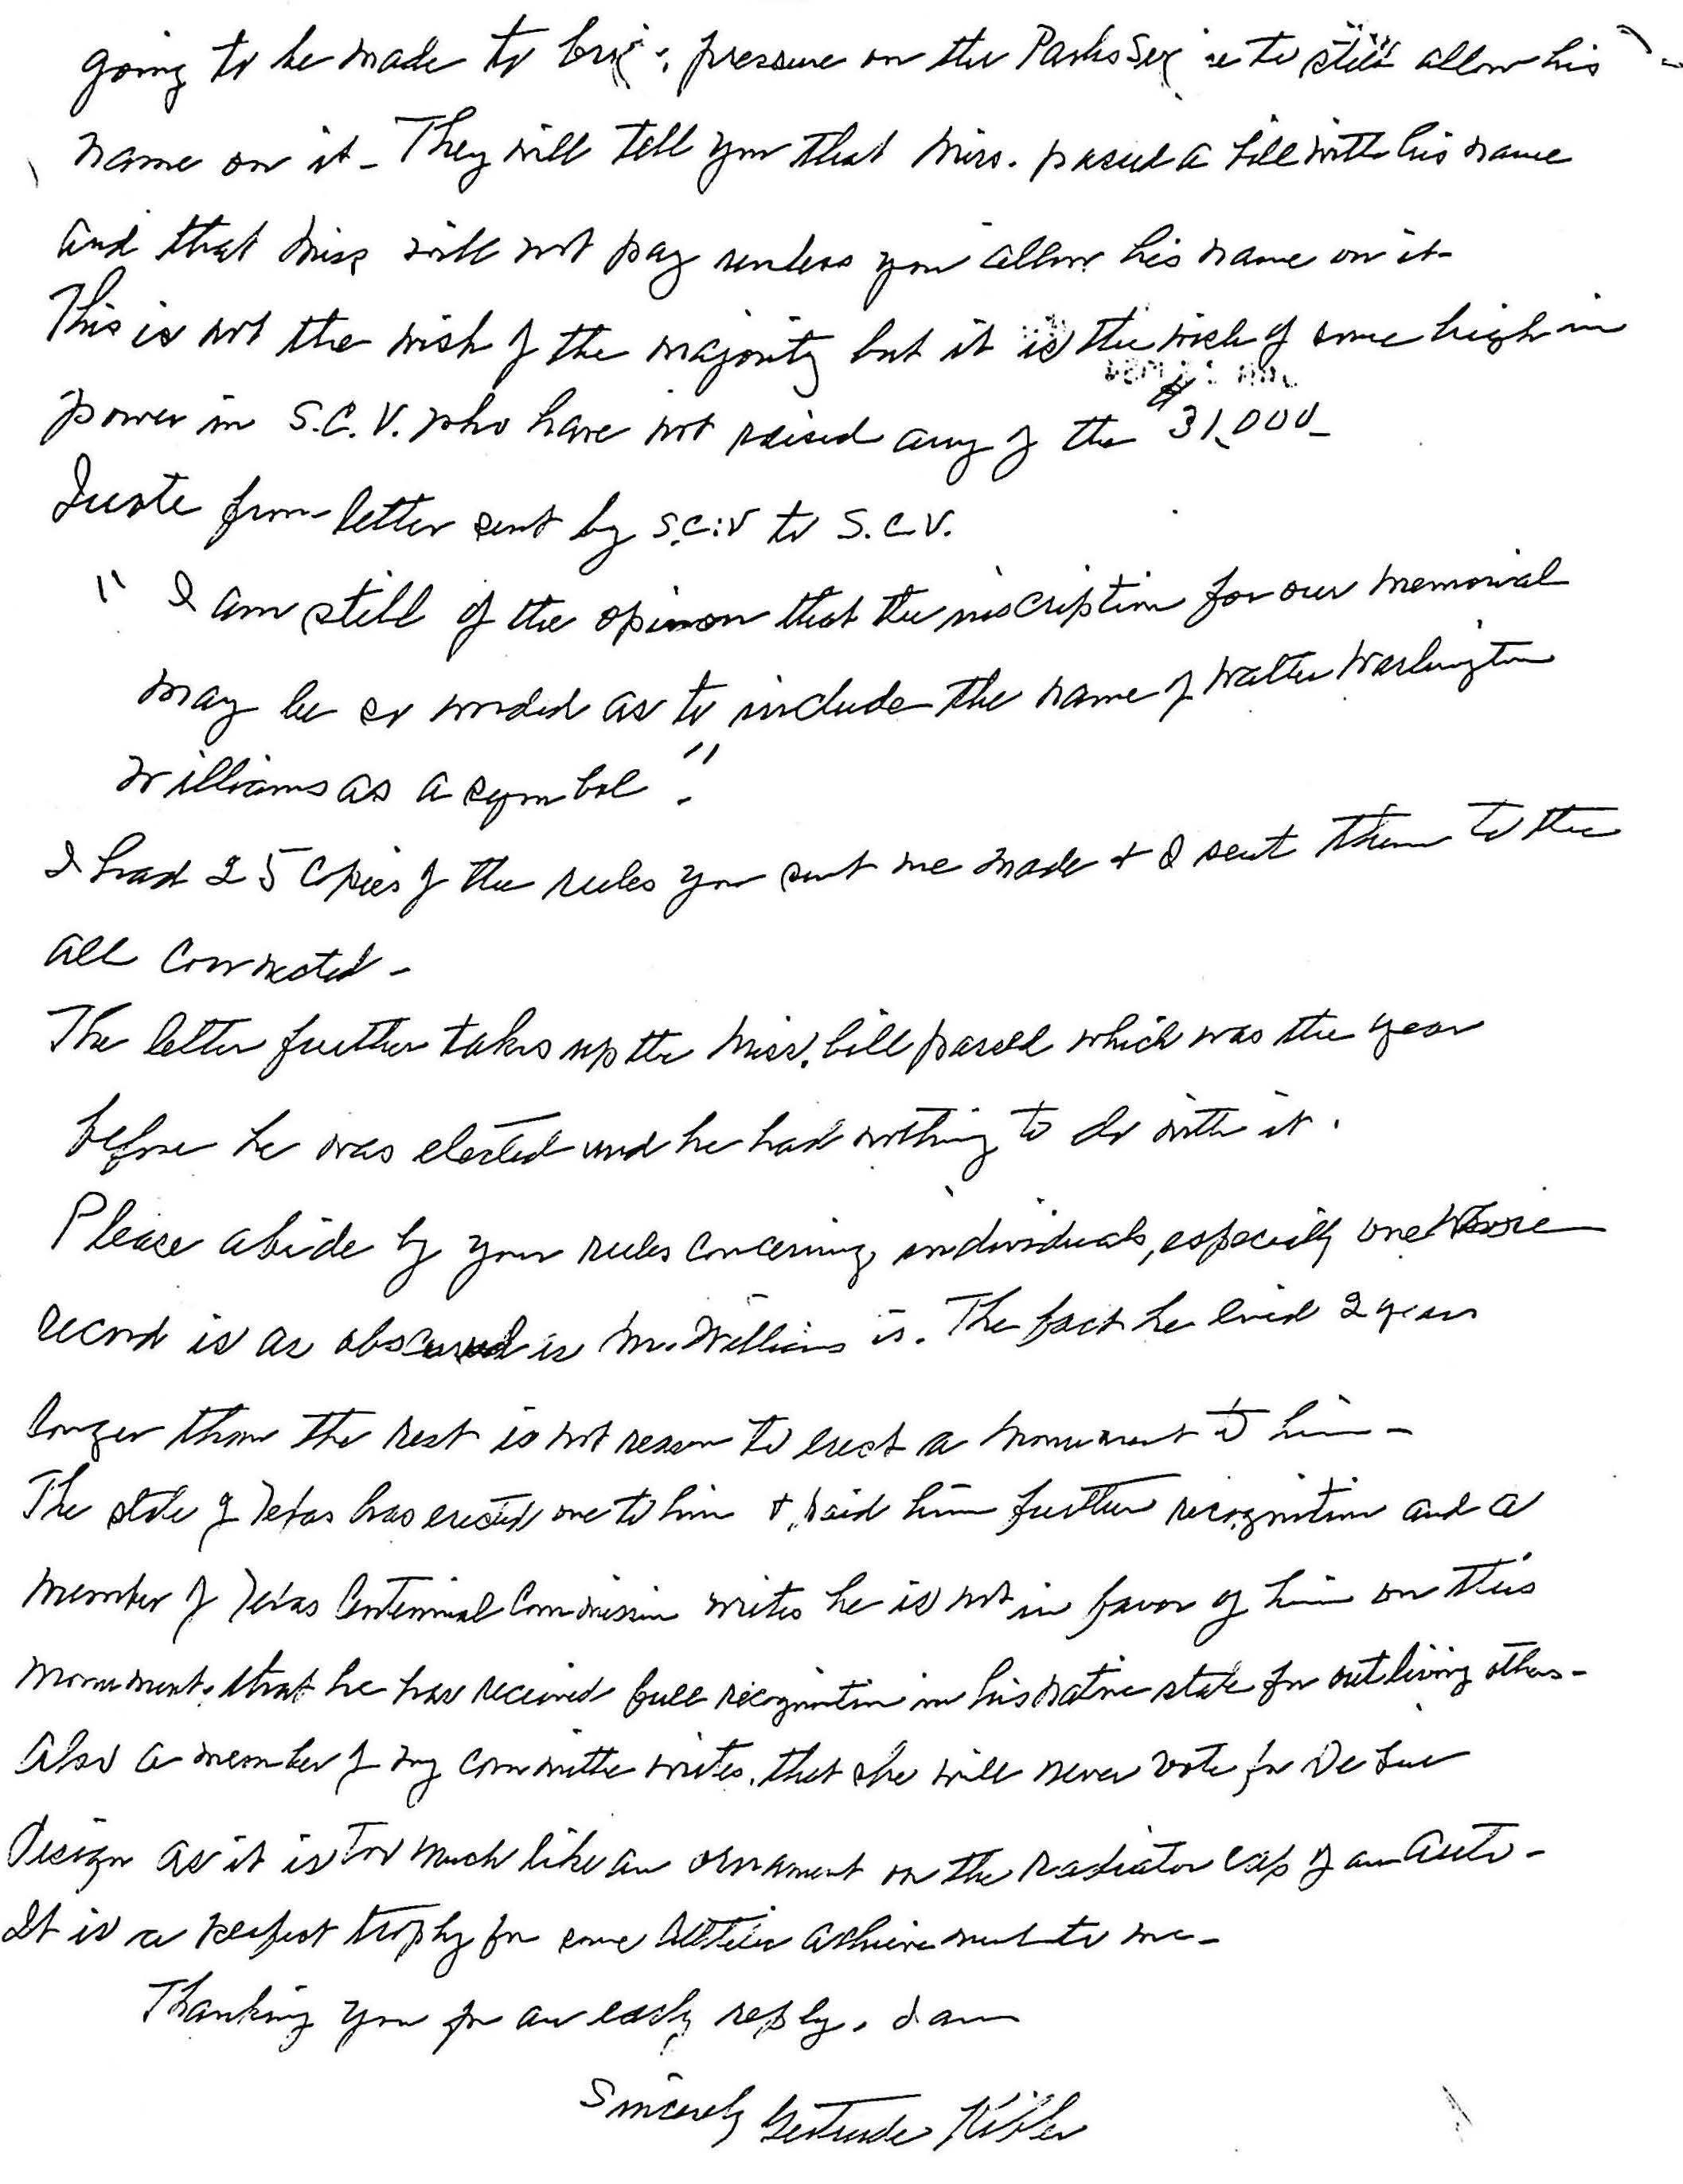 going to be made to bring pressure on the Parks Service to still allow his
name on it - They will tell you that Miss. passed a bill with his name
and that Miss will not pay unless you allow his name on it -
This is not the wish of the majority but it is the wish of some high in
power in S.C.V. who have not raised any of the $31,000 -
Quote from letter sent by S.C.V to S.C.V.
" I am still of the opinion that the inscription for our memorial
may be so worded as to include the name of Walter Washington
Williams as a symbol ".
I had 25 copies of the rules you sent me made + I sent them to the
all connected -
The letter further takes up the Miss. bill passed which was the year
before he was elected and he had nothing to do with it.
Please abide by your rules concerning individuals, especially one whose
record is as obscured is Mr. Williams is. The fact he lived 2 years
longer than the rest is not reason to erect a monument to him -
The state of Texas has erected one to him + paid him further recognition and a
member of Texas Centennial Commission writes he is not in favor of him on this
monument, that he has received full recognition in his native state for outliving others -
Also a member of my committe writes, that she will never vote for De Lue
design as it is too much like an ornament on the radiator cap of an auto -
It is a perfect trophy for some athletic achievement to me -
Thanking you for an early reply, I am
Sincerely Gertrude Kibler